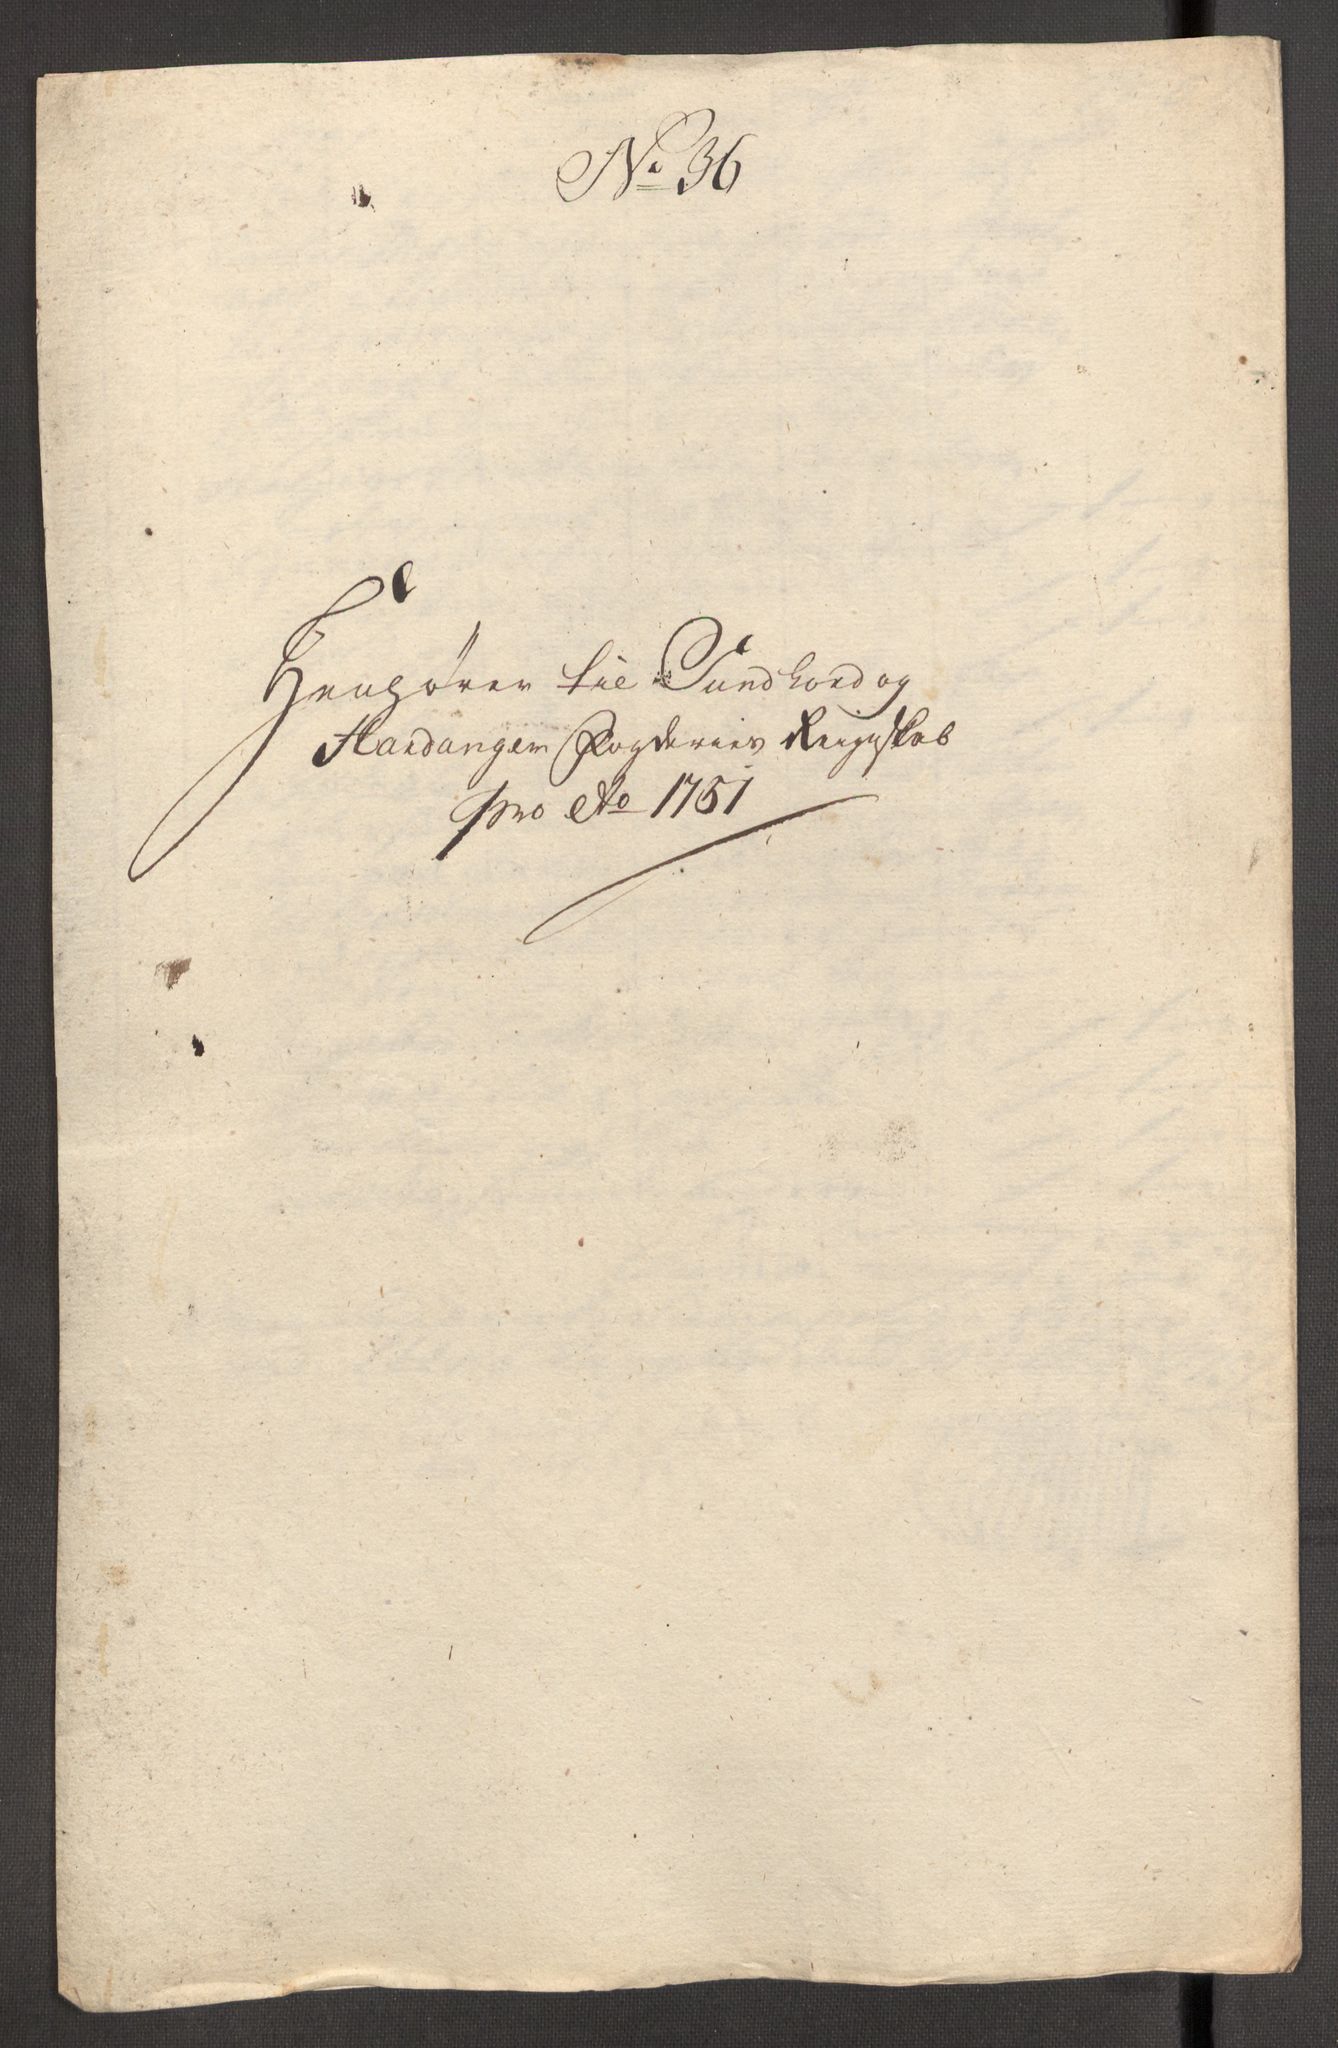 No 36
Henhører til Sundhord og
Hardanger Fogderies Reignskab
pro Ao 1751